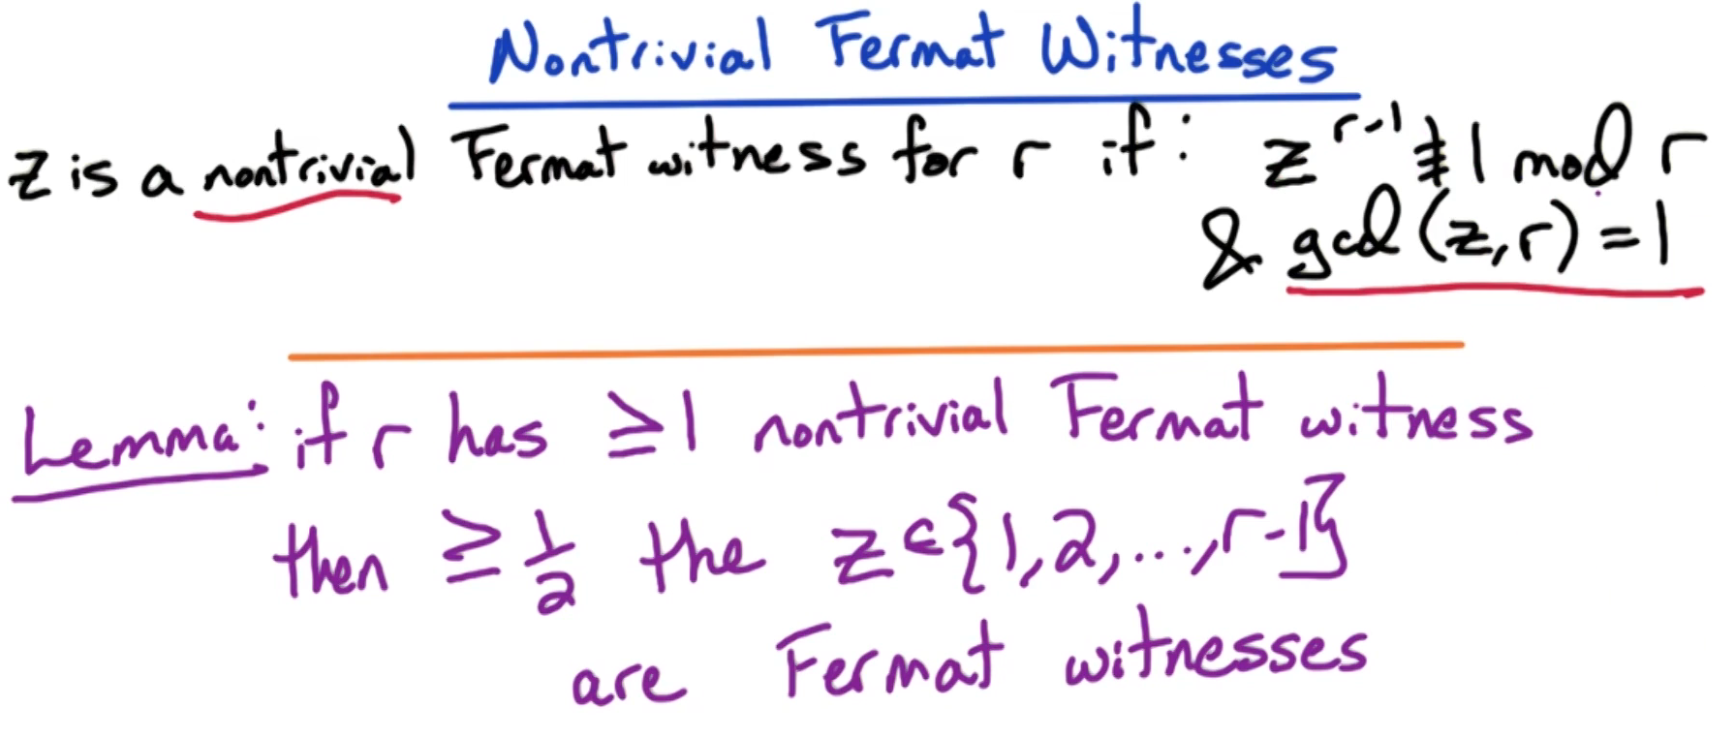 Nontrivial Fermat Witnesses
z is a nontrivial Fermat witness for r if: z^{r-1} ≢ 1 mod r
& gcd(z,r) = 1
Lemma: if r has ≥1 nontrivial Fermat witness
then ≥ 1/2 the z ∈ {1,2,...,r-1}
are Fermat witnesses